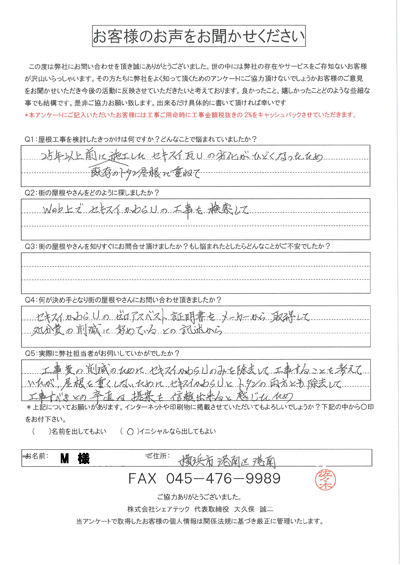 お客様のお声をお聞かせください
この度は弊社にお問い合わせを頂き誠にありがとうございました。世の中には弊社の存在やサービスをご存知ないお客様
が沢山いらっしゃいます。その方たちに弊社をよく知って頂くためのアンケートにご協力頂けないでしょうかお客様のご意見
をお聞かせいただき今後の活動に反映させていただきたいと考えております。良かったこと、嬉しかったことどのような些細な
事でも結構です。是非ご協力お願い致します。出来るだけ具体的に書いて頂ければ幸いです
*本アンケートにご記入いただいたお客様には工事ご用命時に工事金額税抜きの 2%をキャッシュバックさせていただきます。
Q1:屋根工事を検討したきっかけは何ですか？どんなことで悩まれていましたか？
25年以上前に施工した セキスイ瓦Uの劣化がひどくなったため
既存のトタン屋根に重ねて
Q2:街の屋根やさんをどのように探しましたか？
Web上で セキスイかわらUの工事を検索して
Q3:街の屋根やさんを知りすぐにお問合せ頂けましたか？もし悩まれたとしたらどんなことがご不安でしたか？
Q4:何が決め手となり街の屋根やさんにお問い合わせ頂きましたか？
セキスイかわらUのゼロアスベスト証明書をメーカーから取得して
処分費の削減に努めているとの記述から
Q5:実際に弊社担当者がお伺いしていかがでしたか？
工事費の削減のために セキスイかわらUのみを除去して工事することを考えて
いたが、屋根を重くしないために セキスイかわらUとトタンの両方とも除去して
工事すべきとの率直な提案を信頼出来ると感じたため
*上記についてお願いがあります。インターネットや印刷物に掲載させていただいてもよろしいでしょうか？下記の中から〇印
をお付下さい。
（　）名前を出してもよい　（〇）イニシャルなら出してもよい
お名前: M 様 ご住所: 横浜市港南区港南
FAX 045-476-9989
ご協力ありがとうございました。
株式会社シェアテック 代表取締役 大久保 誠二
当アンケートで取得したお客様の個人情報は関係法規に基づき厳正に管理いたします。